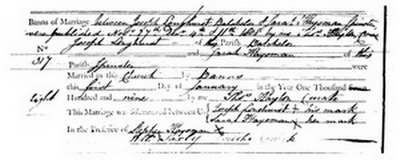 Banns of Marriage between Joseph Longhurst Batchelor & Sarah Hayoman Spinster
were published Nov.r 27th Dec.r 4th & 11th 1808 by me Tho.s Taylor Curate
Joseph Longhurst of this Parish Batchelor
No and Sarah Hayoman of this
317 Parish Spinster were
Married in this Church by Banns
this first Day of January in the Year One Thousand
Eight Hundred and nine by me Tho.s Taylor Curate
This Marriage was solemnized between Us Joseph Longhurst X his mark
Sarah Hayoman X her mark
In the Presence of Stephen Hayoman X